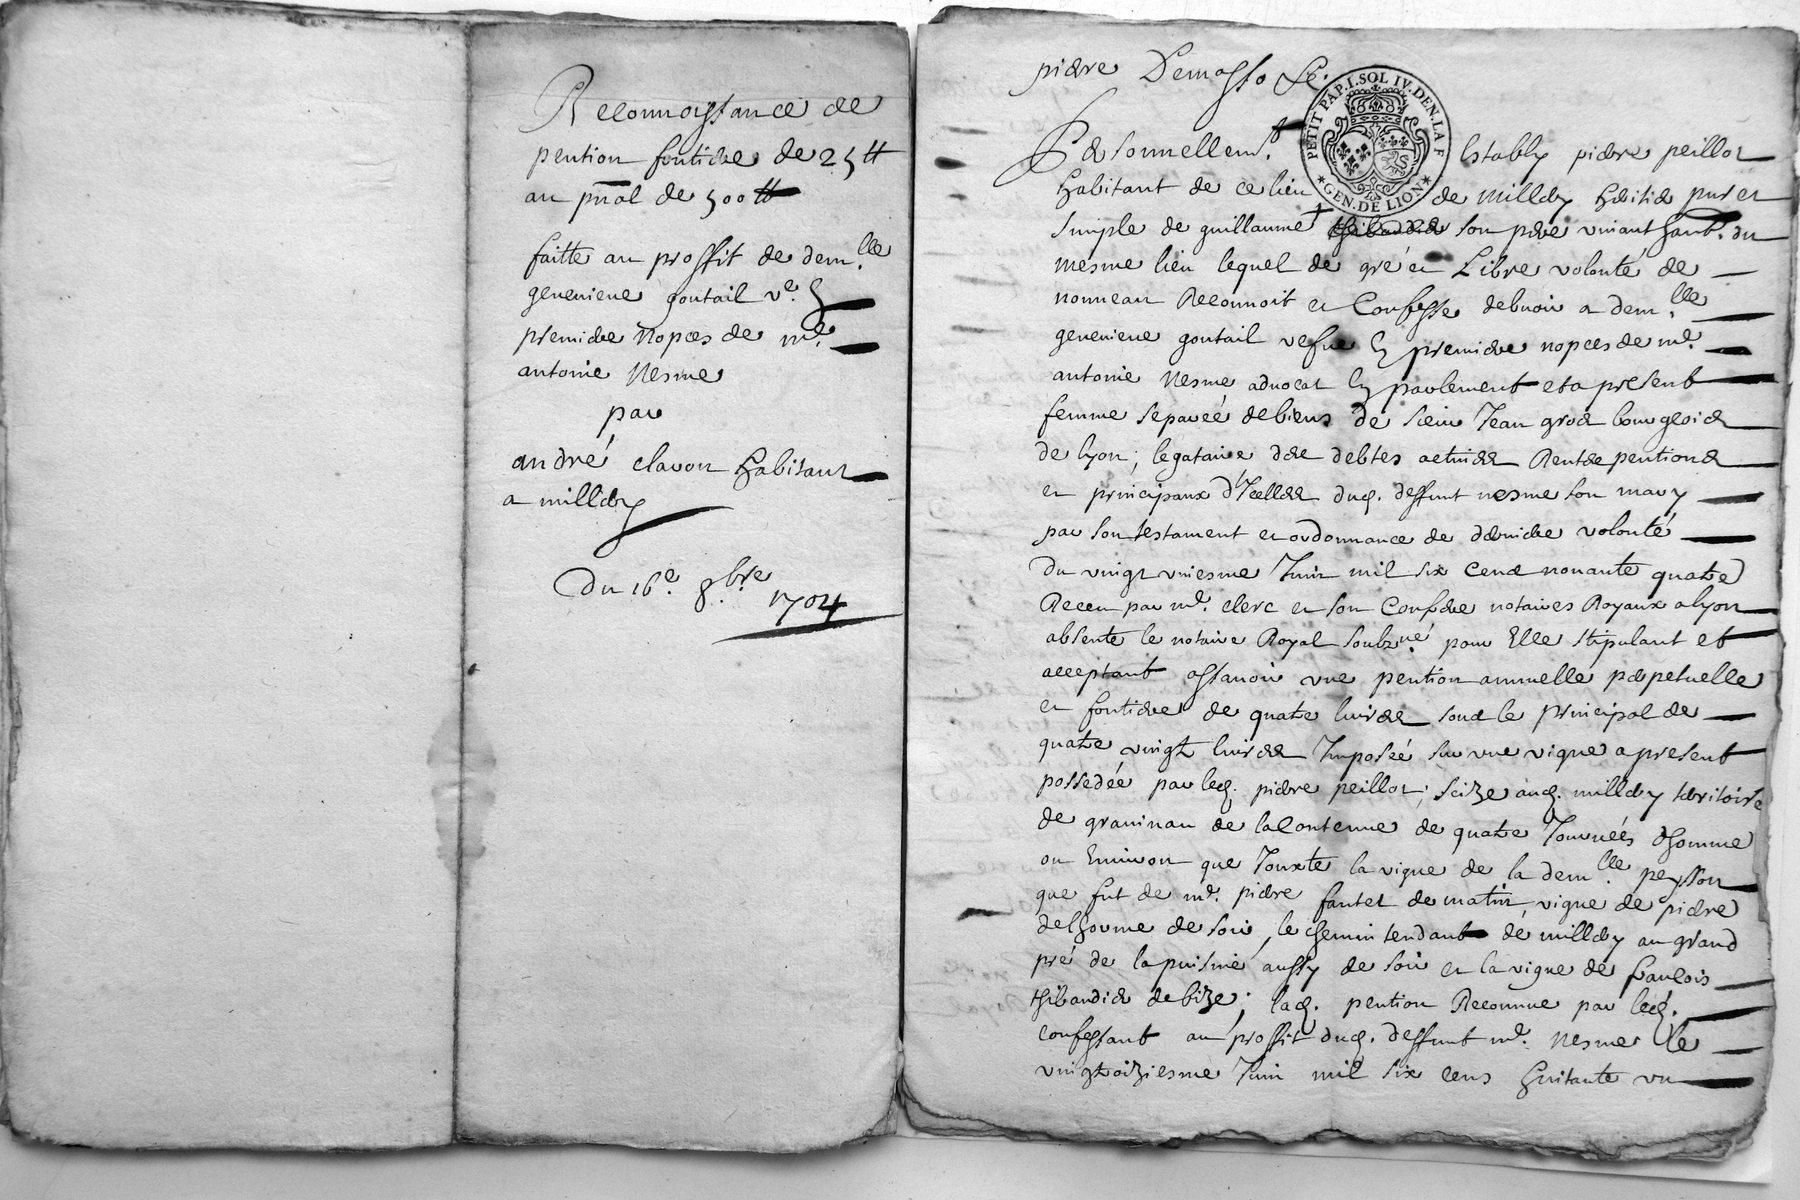 Reconnoissance de
pention fontiere de 25 ₶
au pñal de 500 ₶
faitte au proffit de dem.lle
genevieve goutail ve. en
premiere nopces de mr.
antoine Nesme
par
andré clavon habitant
a millery
Du 16e. 8.bre
1704
pierre Demasso &c.
PETIT PAP. I. SOL IV. DEN. LA F
GEN. DE LION
Personnellemt. Estably pierre peillot
habitant de ce lieu de millery heritier pur et
simple de guillaume son pere vivant habt. du
mesme lieu lequel de gré et Libre volonté de
nouveau Reconnoit et Confesse debvoir a dem.lle
genevieve goutail vefve en premiere nopces de mr.
antoine Nesme advocat En parlement et a present
femme separeé de biens de sieur Jean gros bourgeois
de lyon, legataire des debtes actives Rentes pentions
et principaux d'Icelles dud. deffunt nesme son mary
par son testament et ordonnance de derniere volonté
du vingt uniesme Juin mil six Cens nonante quatre
Receu par mr. clerc et son Confrere notaires Royaux a lyon
absente le notaire Royal soubz.né pour Elle stipulant et
acceptant assavoir une pention annuelle perpetuelle
et fontiere de quatre livres sous le principal de
quatre vingt livres Imposeé sur une vigne a present
possedeé par led. pierre peillot, scize aud. millery territoire
de gravinau de la Contenue de quatre Journeés d'homme
ou Environ que Jouxte la vigne de la dem.lle peysson
que fut de mr. pierre fautet de matin, vigne de pierre
delhorme de soir, le chemin tendant de millery au grand
pré de la puisnie aussy de soir et la vigne de françois
thibaudier de bize; lad. pention Reconnue par led.
confessant au proffit dud. deffunt mr. Nesme le
vingt oiziesme Juin mil six cens huitante un